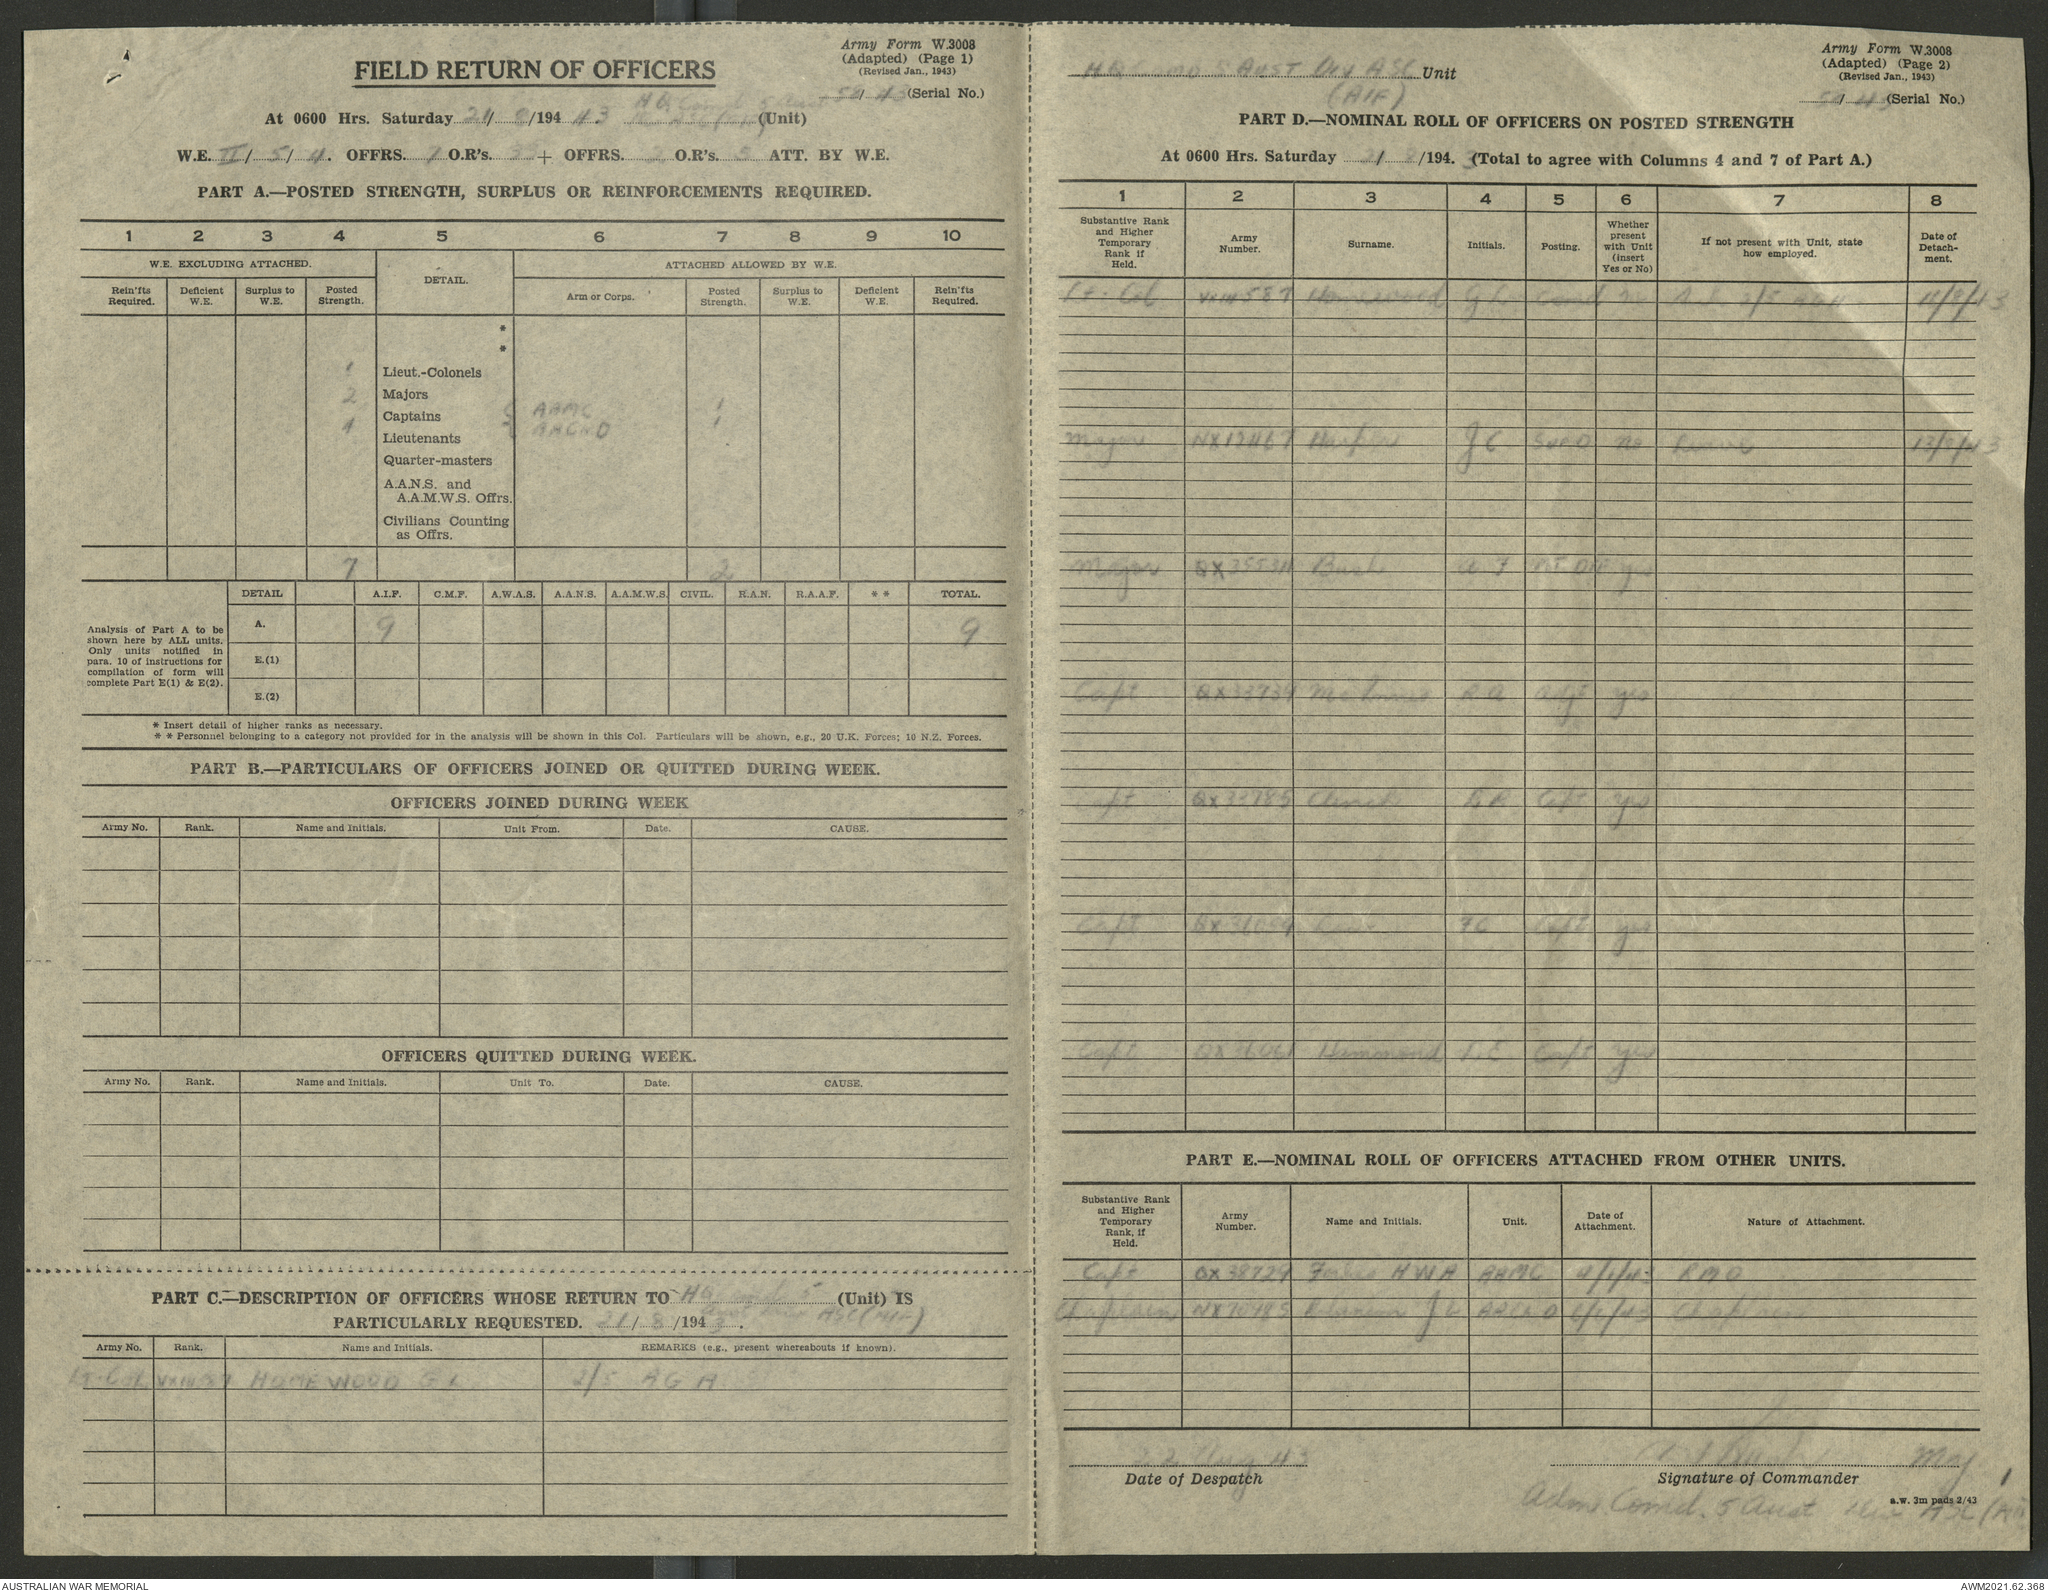 Army Form W.3008
(Adapted) (Page 1)
(Revised Jan., 1943)
FIELD RETURN OF OFFICERS
(Serial No.)
At 0600 Hrs. Saturday 21/ 8/194 43 H Q Comd 5 Aust (Unit)
W.E. II/ 5/ 4. OFFRS. 7 O.R's. + OFFRS. 2 O.R's. 5 ATT. BY W.E.
PART A.—POSTED STRENGTH, SURPLUS OR REINFORCEMENTS REQUIRED.
1 2 3 4 5 6 7 8 9 10
W.E. EXCLUDING ATTACHED. DETAIL. ATTACHED ALLOWED BY W.E.
Rein'fts Required. Deficient W.E. Surplus to W.E. Posted Strength. Arm or Corps. Posted Strength. Surplus to W.E. Deficient W.E. Rein'fts Required.
*
*
1 Lieut.-Colonels
2 Majors
Captains AAMC 1
4 Lieutenants AACHD 1
Quarter-masters
A.A.N.S. and
A.A.M.W.S. Offrs.
Civilians Counting
as Offrs.
7 2
DETAIL A.I.F. C.M.F. A.W.A.S. A.A.N.S. A.A.M.W.S. CIVIL. R.A.N. R.A.A.F. * * TOTAL.
Analysis of Part A to be
shown here by ALL units.
Only units notified in
para. 10 of instructions for
compilation of form will
complete Part E(1) & E(2).
A. 9 9
E.(1)
E.(2)
* Insert detail of higher ranks as necessary.
* * Personnel belonging to a category not provided for in the analysis will be shown in this Col. Particulars will be shown, e.g., 20 U.K. Forces; 10 N.Z. Forces.
PART B.—PARTICULARS OF OFFICERS JOINED OR QUITTED DURING WEEK.
OFFICERS JOINED DURING WEEK
Army No. Rank. Name and Initials. Unit From. Date. CAUSE.
OFFICERS QUITTED DURING WEEK.
Army No. Rank. Name and Initials. Unit To. Date. CAUSE.
PART C.—DESCRIPTION OF OFFICERS WHOSE RETURN TO HQ Comd 5 (Unit) IS
Aust Div ASC (AIF)
PARTICULARLY REQUESTED. 21/ 8/194 3.
Army No. Rank. Name and Initials. REMARKS (e.g., present whereabouts if known).
Lt-Col HOMEWOOD G L 2/5 AGH
Army Form W.3008
(Adapted) (Page 2)
(Revised Jan., 1943)
HQ Comd 5 Aust Div ASC Unit
(AIF)
(Serial No.)
PART D.—NOMINAL ROLL OF OFFICERS ON POSTED STRENGTH
At 0600 Hrs. Saturday 21/ 8/194. 3 (Total to agree with Columns 4 and 7 of Part A.)
1 2 3 4 5 6 7 8
Substantive Rank and Higher Temporary Rank if Held. Army Number. Surname. Initials. Posting. Whether present with Unit (insert Yes or No) If not present with Unit, state how employed. Date of Detachment.
Lt-Col Homewood G L Comd No 2/5 AGH
Major NX12467 J C SupO No 13/8/43
Major Bush A F yes
Capt QX33734 McInnes R A Adjt yes
Capt QX33785 Capt yes
Capt F C Capt yes
Capt Hammond L E Capt yes
PART E.—NOMINAL ROLL OF OFFICERS ATTACHED FROM OTHER UNITS.
Substantive Rank and Higher Temporary Rank, if Held. Army Number. Name and Initials. Unit. Date of Attachment. Nature of Attachment.
Capt QX38729 H W A AAMC RMO
Chaplain NX70485 J L AACHD Chaplain
22 Aug 43 Maj
Date of Despatch Signature of Commander
Adm. Comd. 5 Aust Div ASC (AIF)
a.w. 3m pads 2/43
AUSTRALIAN WAR MEMORIAL AWM2021.62.368